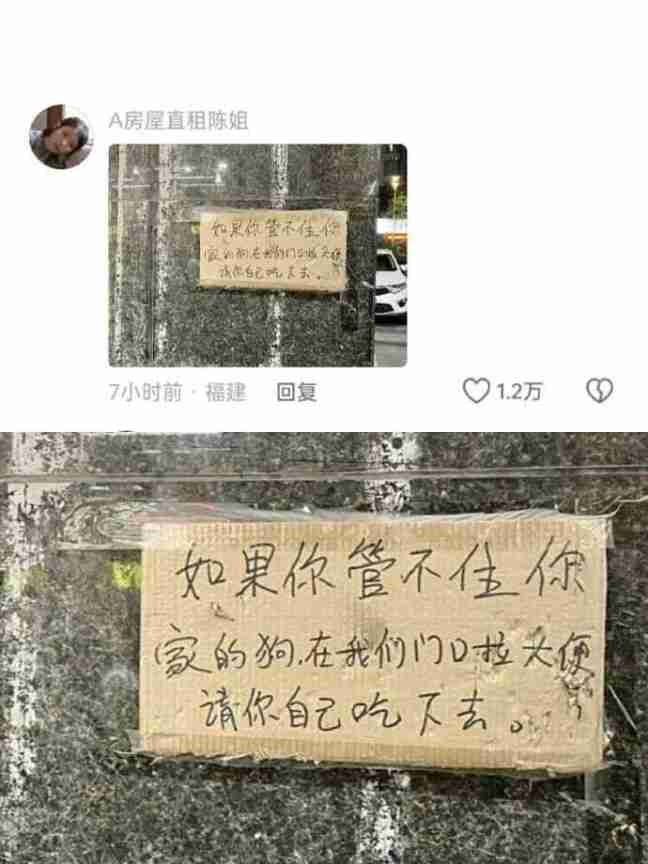 A房屋直租陈姐
如果你管不住你
家的狗.在我们门口拉大便
请你自己吃下去。
7小时前 · 福建 回复 1.2万
如果你管不住你
家的狗.在我们门口拉大便
请你自己吃下去。